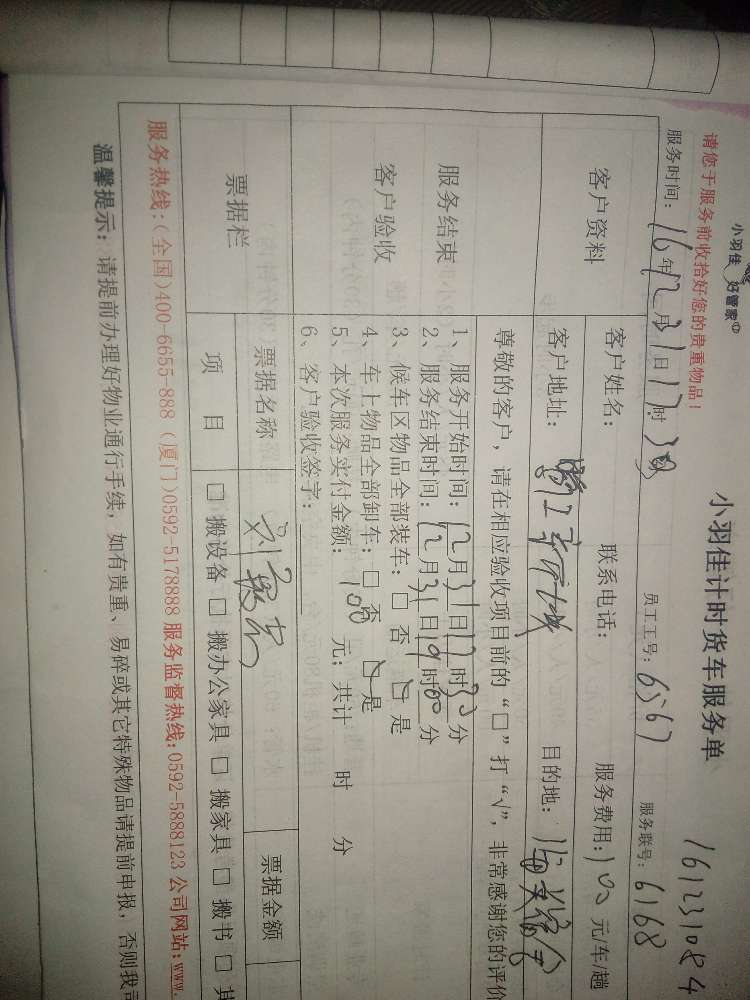 小羽佳 好管家
小羽佳计时货车服务单
161231084
请您于服务前收拾好您的贵重物品！
服务时间：16年12月31日17时30 员工工号：6567 服务联号：6168
客户资料
客户姓名： 联系电话： 服务费用：100元/车/趟
客户地址： 目的地：
尊敬的客户，请在相应验收项目前的“□”打“√”，非常感谢您的评价
服务结束
客户验收
1、服务开始时间：12月31日17时30分
2、服务结束时间：12月31日19时00分
3、候车区物品全部装车：□ 否 □ 是
4、车上物品全部卸车：□ 否 □ 是
5、本次服务实付金额：100 元；共计 时 分
6、客户验收签字：
票据栏
票据名称 票据金额
项 目 □ 搬设备 □ 搬办公家具 □ 搬家具 □ 搬书 □ 其
服务热线：(全国)400-6655-888 (厦门)0592-5178888 服务监督热线：0592-5888123 公司网站：www.
温馨提示：请提前办理好物业通行手续，如有贵重、易碎或其它特殊物品请提前申报，否则我司